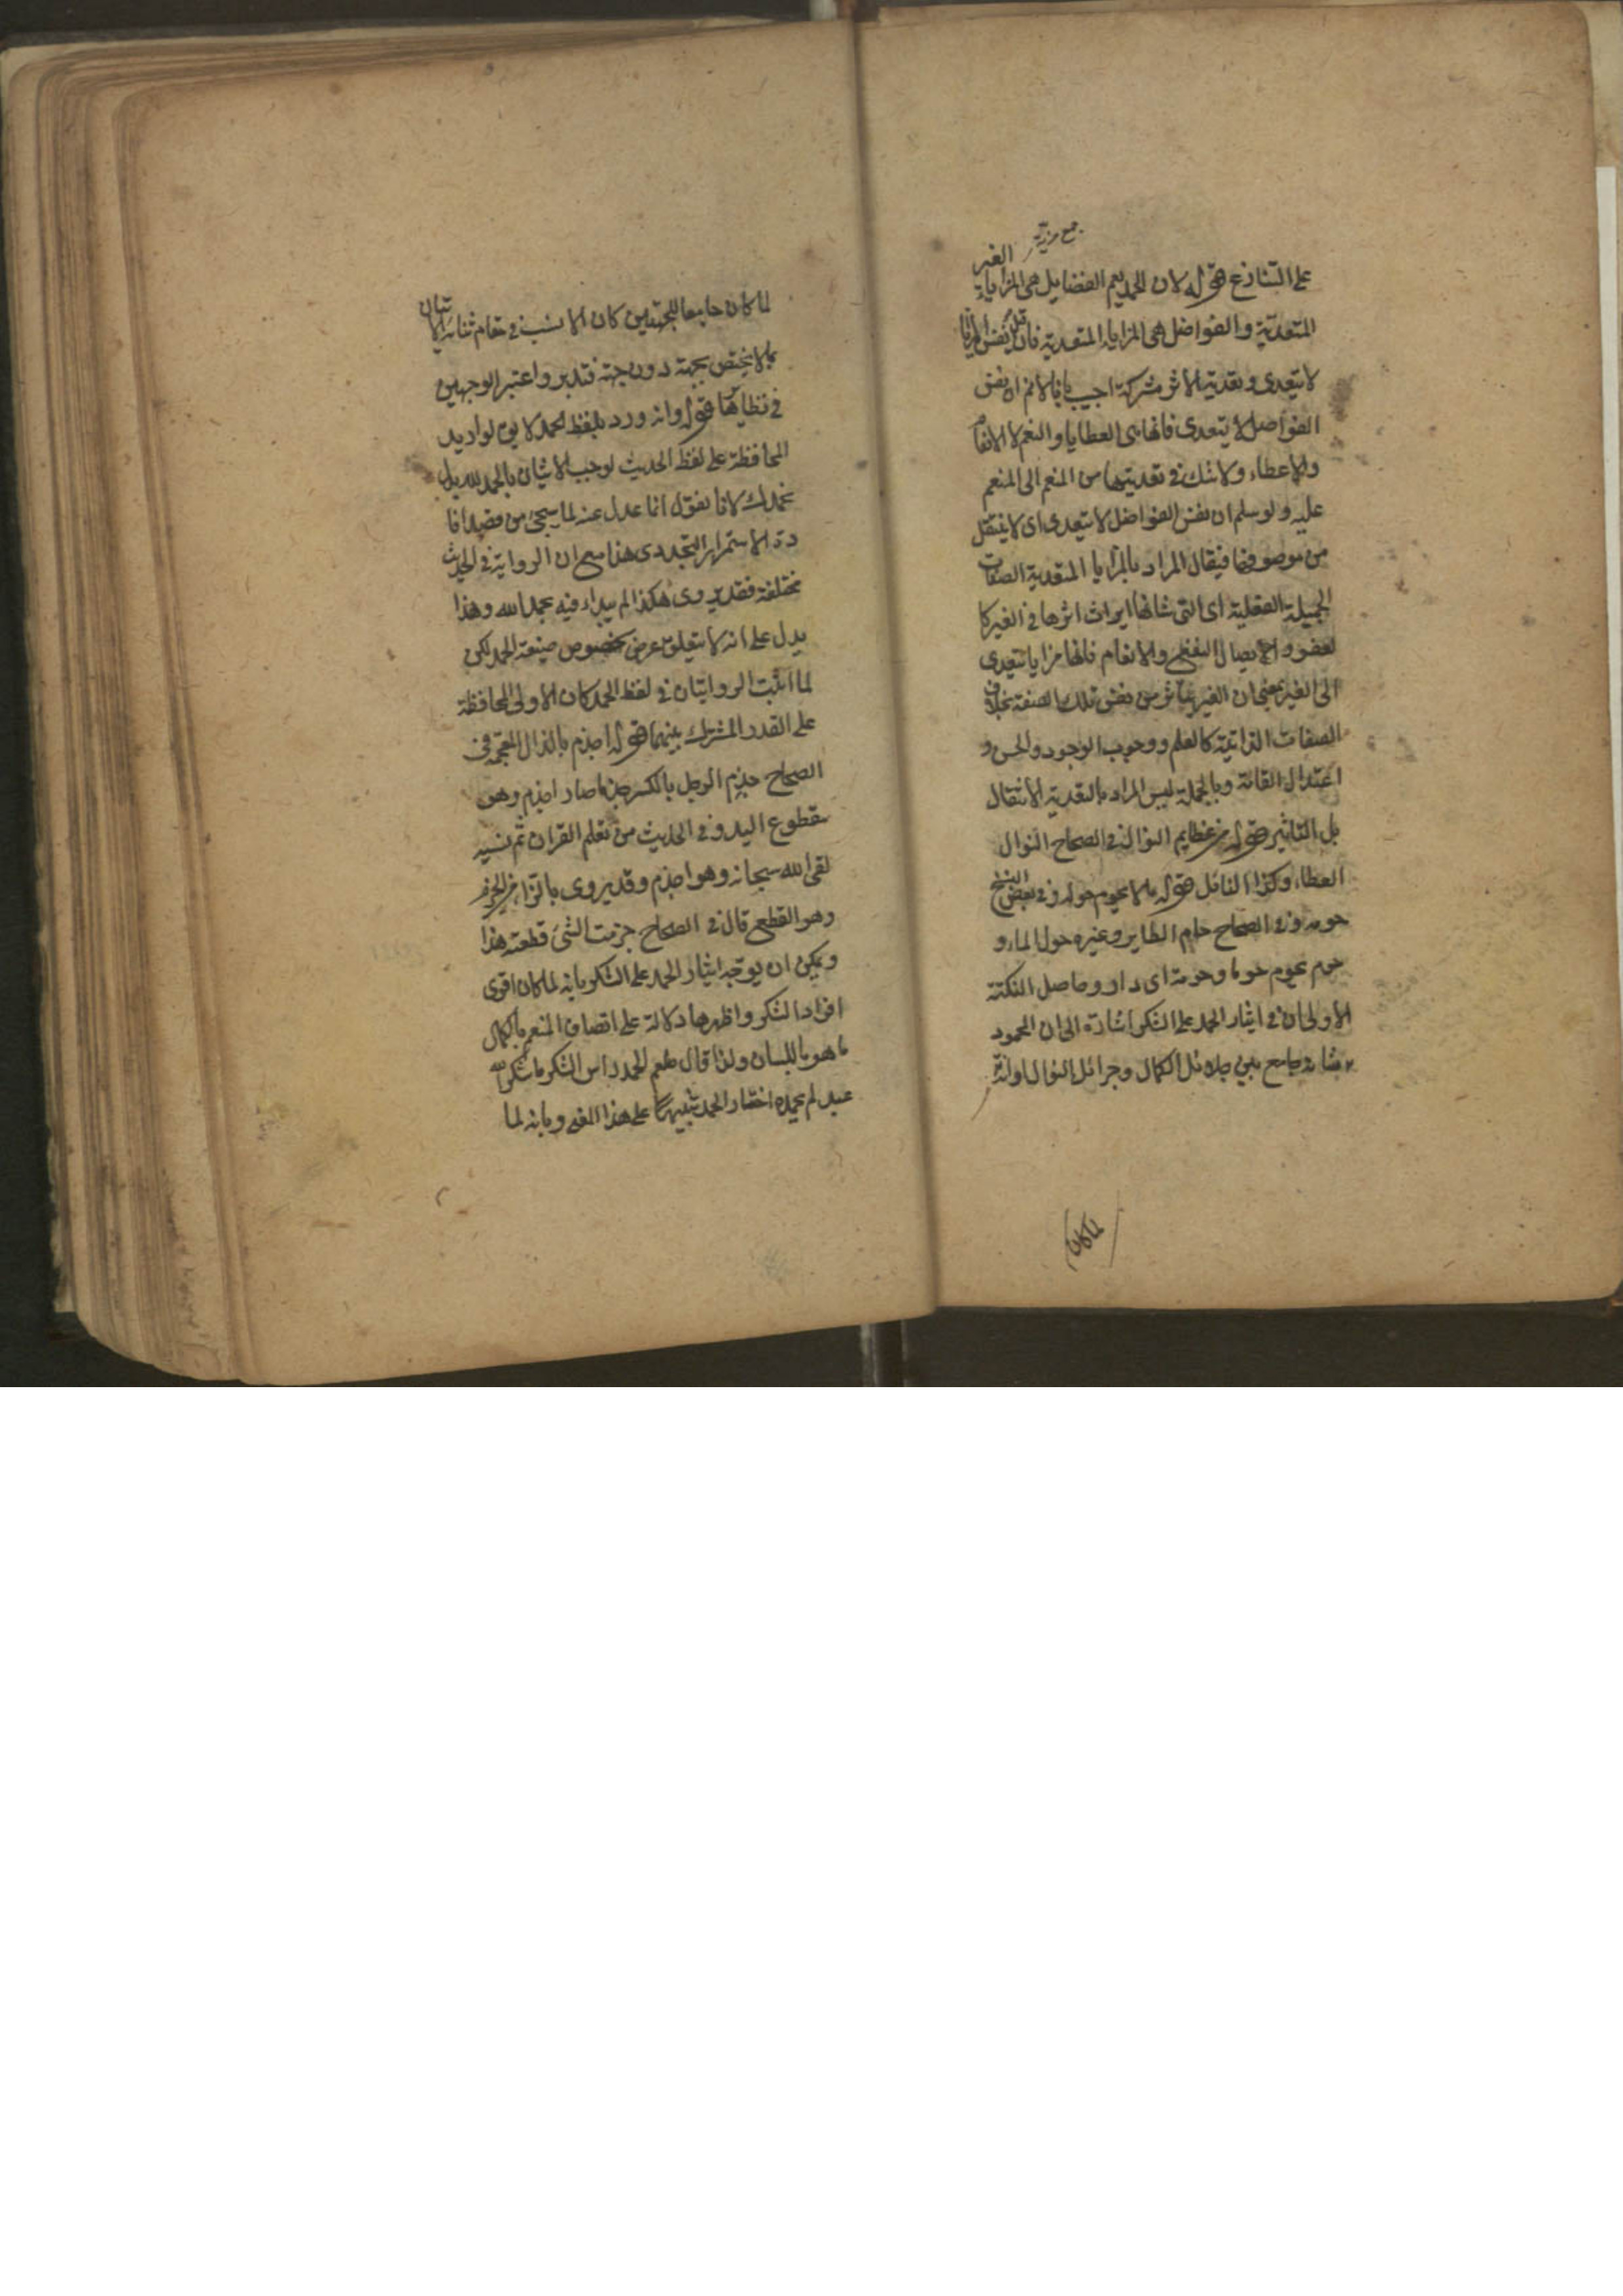 جمع مزية
على التنازع قوله لان الحمد يعم الفضايل هى المزايا الغير
المتعدية والفواضل هى المزايا المتعدية فان قيل نفس المزايا
لا يتعدى وتعدية الاثر مشتركة اجيب بانا لانم ان نفس
الفواضل لا يتعدى فانها هى العطايا والنعم لا الانعام
والاعطاء ولا شك فى تعديتها من المنعم الى المنعم
عليه ولو سلم ان نفس الفواضل لا يتعدى اى لا ينتقل
من موصوفها فيقال المراد بالمزايا المتعدية الصفات
الجميلة الفعلية اى التى شانها ايراث اثرها فى الغير كا
لعفو والايصال النفع والانعام فانها مزايا تتعدى
الى الغير بمعنى ان الغير يتاثر من نفس تلك الصفة بخلاف
الصفات الذاتية كالعلم ووجوب الوجود والحسن و
اعتدال القامة وبالجملة ليس المراد بالتعدية الانتقال
بل التاثير قوله من عظايم النوال فى الصحاح النوال
العطاء وكذا النائل قوله ما لا يحوم حوله وفى بعض النسخ
حومه وفى الصحاح حام الطاير وغيره حول الماء و
حوم يحوم حوما وحومة اى دار وحاصل النكتة
الاولى ان فى ايثار الحمد على الشكر اشارة الى ان المحمود
جامع بين جلائل الكمال وجزائل النوال
لما كان
لما كان جامعا للجهتين كان الانسب فى مقام ثنائه الاتيان
بما لا يختص بجهة دون جهة فتدبر واعتبر الوجهين
فى نظايرها قوله وانه ورد بلفظ الحمد لا يق لو اريد
المحافظة على لفظ الحديث لوجب الاتيان بالحمد لله بدل
نحمدك لانا نقول انما عدل عنه لما سيجئ من قصد افا
دة الاستمرار التجددى هذا مع ان الرواية فى الحديث
مختلفة فقد يروى هكذا لم يبداء فيه بحمد الله وهذا
يدل على انه لا يتعلق غرض بخصوص صيغة الحمد لكن
لما اثبت الروايتان فى لفظ الحمد كان الاولى المحافظة
على القدر المشترك بينهما قوله اجذم بالذال المعجمة فى
الصحاح جذم الرجل بالكسر جذما صار اجذم وهو
مقطوع اليد وفى الحديث من تعلم القران ثم نسيه
لقى الله سبحانه وهو اجذم وقد يروى بالزاء من الجزم
وهو القطع قال فى الصحاح جزمت الشئ قطعته هذا
ويمكن ان يوجه ايثار الحمد على الشكر بانه لما كان اقوى
افراد الشكر واظهرها دلالة على اتصاف المنعم بالكمال
ما هو باللسان ولذا قال صلعم الحمد راس الشكر ما شكر الله
عبد لم يحمده اختار الحمد تنبيها على هذا المعنى وبانه لما